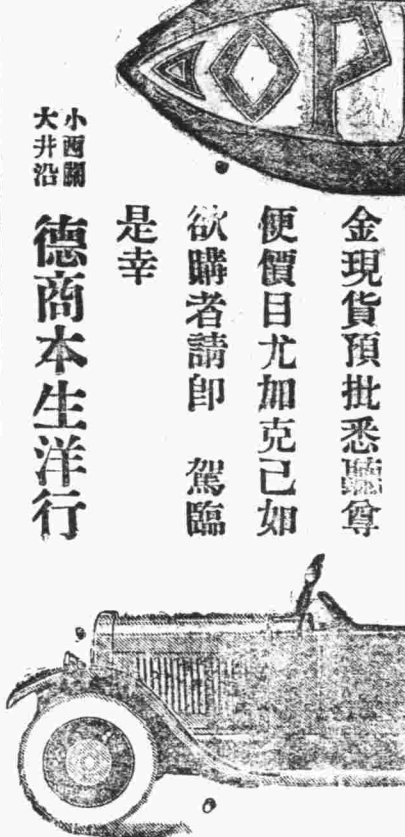 OP
金現貨預批悉聽尊
便價目尤加克己如
欲購者請卽　駕臨
是幸
小西關
大井沿
德商本生洋行